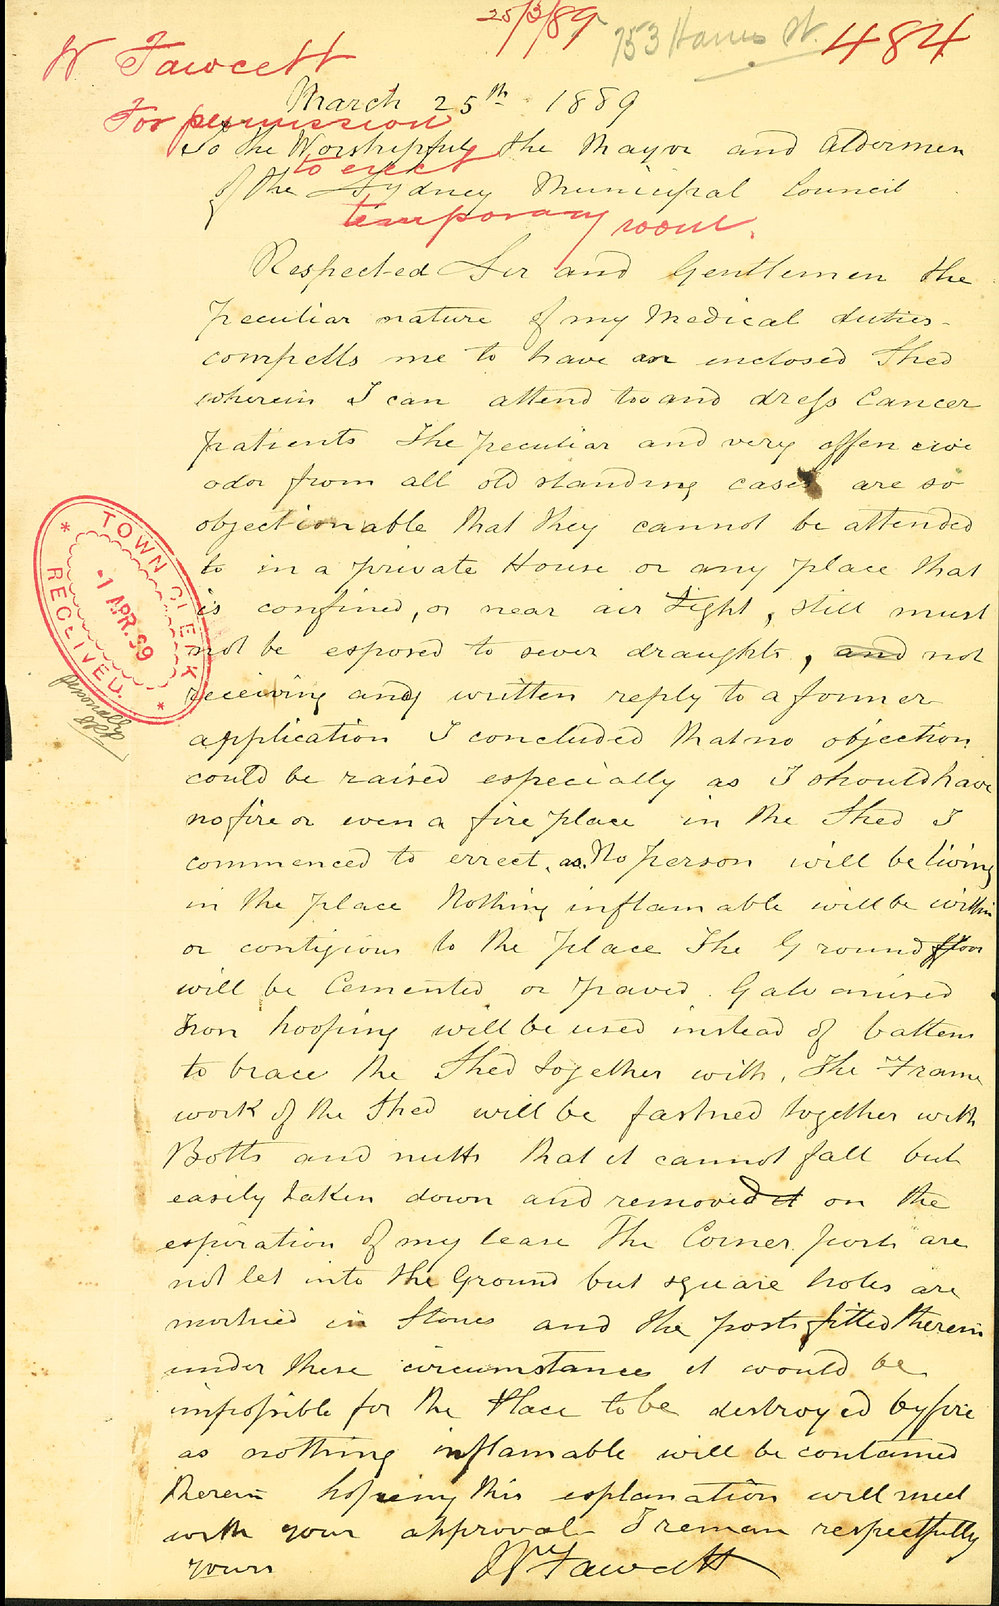 25/3/89
753 Harris St.
484
W Fawcett
For permission
to erect
temporary room.
March 25th 1889
To the Worshipful the Mayor and Aldermen
of the Sydney Municipal Council
Respected Sir and Gentlemen the
Peculiar nature of my Medical duties
compells me to have an inclosed Shed
wherein I can attend too and dress Cancer
patients The peculiar and very offencive
odor from all old standing cases are so
objectionable that they cannot be attended
to in a private House or any place that
is confined, or near air tight, still must
not be exposed to sever draughts, and not
receiving any written reply to a former
application I concluded that no objection
could be raised especially as I should have
no fire or even a fire place in the Shed I
commenced to errect, as. No person will be living
in the place Nothing inflamable will be within
or contigious to the place The Ground floor
will be Cemented or paved. Galvanised
Iron hooping will be used instead of battens
to brace the Shed together with, The Frame
work of the Shed will be fastned together with
Bolts and nutts that it cannot fall but
easily taken down and removed it on the
expiration of my lease The Corner posts are
not let into the Ground but square holes are
mortised in Stones and the posts fitted therein
under these circumstances it would be
impossible for the Place to be destroyed by fire
as nothing inflamable will be contained
therein hopeing this explanation will meet
with your approval I remain respectfully
yours W Fawcett
TOWN CLERK
-1 APR. 89
RECEIVED.
personally